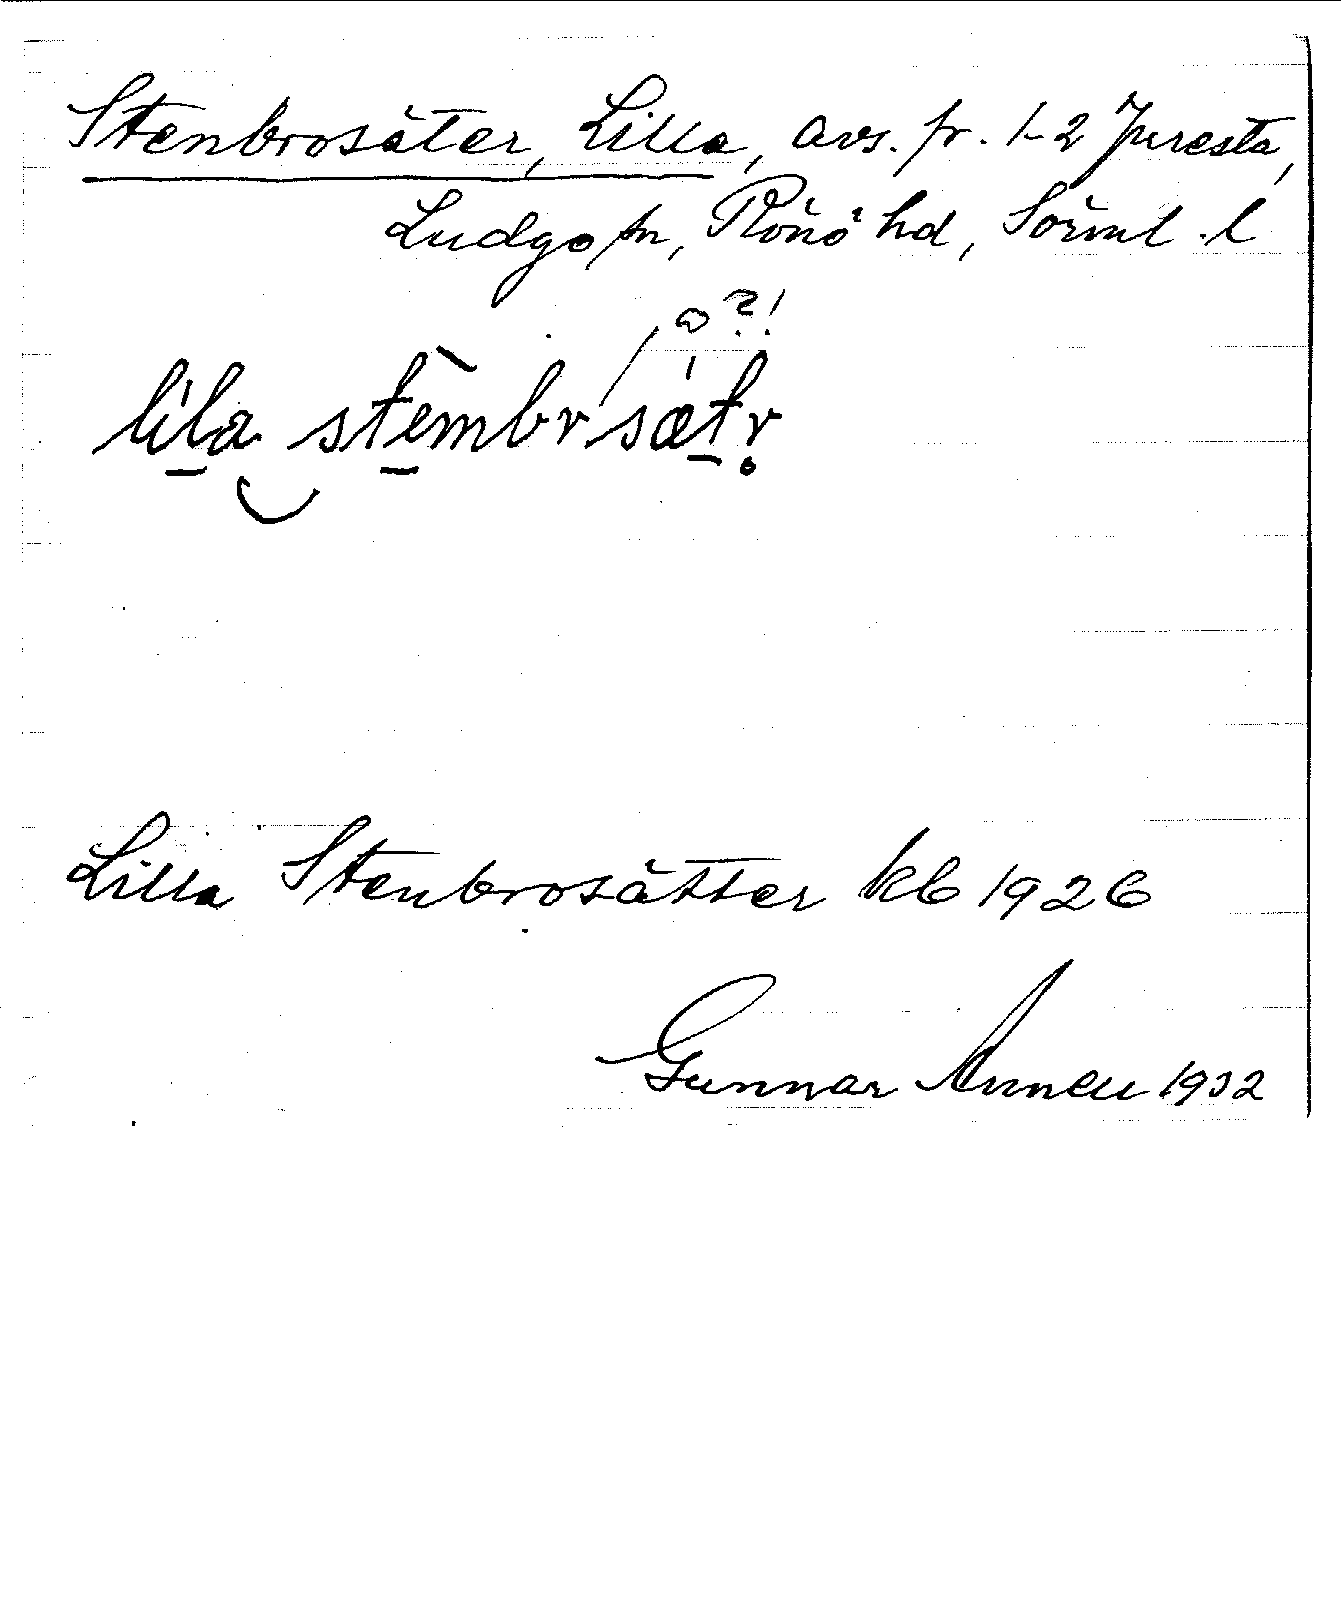 Stenbrosäter, Lilla, avs. fr. 1-2 Juresta,
Ludgo sn, Rönö hd, Sörml. l
o ?!
lila stembrsætr
Lilla Stenbrosätter kb 1926
Gunnar 1932